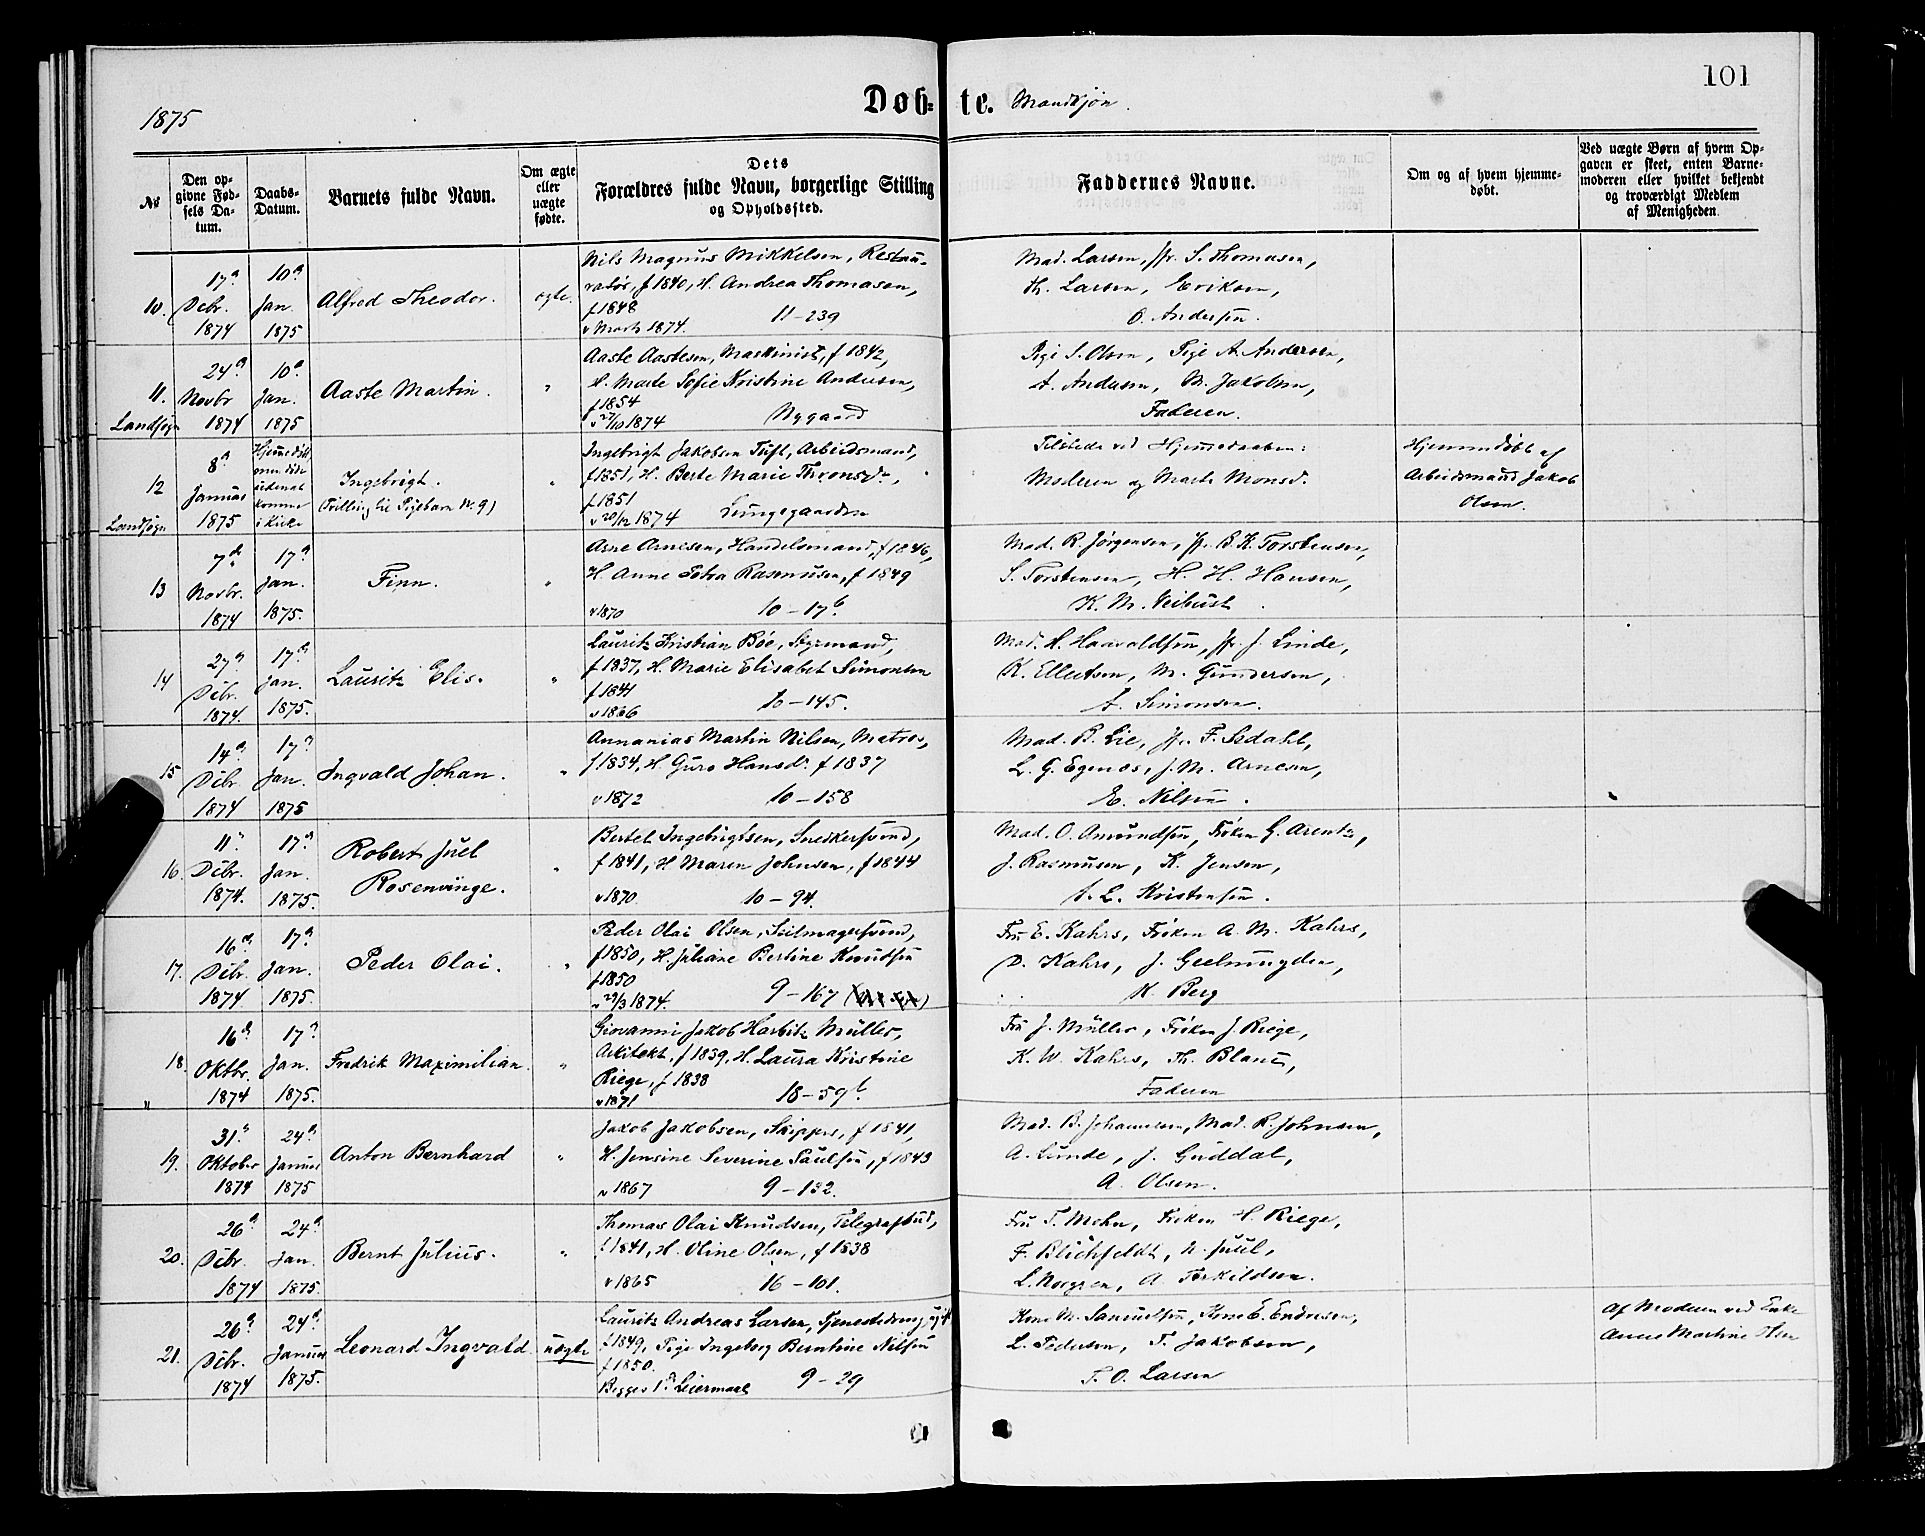 101
1875
Døb-te. Mandkjøn.
No
Den op-
givne Fød-
sels Da-
tum.
Daabs-
Datum.
Barnets fulde Navn.
Om ægte
eller
uægte
fødte.
Dets
Forældres fulde Navn, borgerlige Stilling
og Opholdssted.
Faddernes Navne.
Om og af hvem hjemme-
døbt.
Ved uægte Børn af hvem Op-
gaven er skeet, enten Barne-
moderen eller hvilket bekjendt
og troværdigt Medlem
af Menigheden.
10. 17de Decbr. 1874
10de Jan. 1875
Alfred Theodor.
ægte.
Nils Magnus Mikkelsen, Restau-
ratør, f 1840, H. Andrea Thomasen,
f 1848
v Marts 1874. 11-239
Mad. Larsen, Jfr. S. Thomasen,
Th. Larsen, Eriksen,
O. Andersen.
11. Landsogn
24de Novbr 1874
10de Jan. 1875
Aaste Martin.
"
Aaste Aastesen, Maskinist, f 1842,
H. Marte Sofie Kristine Andersen,
f 1854
v 27/10 1874 Nygaard
Pige S. Olsen, Pige A. Andersen,
A. Andersen, M. Jakobsen,
Faderen.
12 Landsogn
8de Januar 1875
Hjemmedøbt
men døde
udenat
komme
i Kirke
Ingebrigt.
(Tvilling til Pigebarn N. 9)
"
Ingebrigt Jakobsen Tuft, Arbeidsmand,
f 1851, H. Berte Marie Thronsdr,
f 1851
v 20/12 1874 Lungegaarden
Tilstede ved Hjemmedaaben:
Moderen og Marte Monsd.
Hjemmedøbt af
Arbeidsmand Jakob
Olsen.
13 7de Novbr. 1874
17de Jan. 1875.
Finn.
"
Arne Arnesen, Handelsmand, f 1846,
H. Anne Petra Rasmusen, f 1849
v 1870 10-17b
Mad. R. Jørgensen, Jfr. B. K. Torstensen,
S. Torstensen, H. H. Hansen,
K. M. Veibust.
14 27de Decbr. 1874.
17de Jan. 1875.
Lauritz Elis.
"
Lauritz Kristian Bøe, Styrmand,
f 1837, H. Marie Elisabet Simonsen
f 1841
v 1866 10-145.
Mad. H. Haavoldsen, Jfr. J. Linde,
K. Ellertsen, M. Gundersen,
A. Simonsen.
15 14de Decbr. 1874
17de Jan. 1875
Ingvald Johan.
"
Annanias Martin Nilsen, Matros,
f 1834, H. Guro Hansdr. f 1837
v 1872 10-158
Mad. B. Lie, Jfr. F. Asdahl,
L. G. Egenes, J. M. Arnesen,
E. Nilsen.
16. 11te Decbr. 1874.
17de Jan. 1875.
Robert Juel
Rosenvinge.
"
Bertel Ingebrigtsen, Snedkersvend,
f 1841, H Maren Johnsen, f 1844
v 1870 10-94.
Mad. O. Amundsen, Frøken G. Arentz,
J. Rasmusen, K. Jensen,
A. L. Kristensen.
17. 16de Decbr. 1874
17de Jan. 1875.
Peder Olai.
"
Peder Olai Olsen, Seilmagersvend,
f 1850, H. Juliane Bertine Knudsen
f 1850
v 29/3 1874. 9-167
Fru E. Kahrs, Frøken A. M. Kahrs,
D. Kahrs, J. Geelmuyden,
K. Berg
18. 16de Oktbr. 1874
17de Jan. 1875.
Fredrik Maximilian.
"
Giovanni Jakob Harbitz Müller,
Arkitekt, f 1839, H. Laura Kristine
Riege, f 1838
v 1871 18-59b.
Fru J. Müller, Frøken J. Riege,
K. W. Kahrs, Th. Blanc,
Faderen
19. 31te Oktober 1874
24de Januar 1875
Anton Bernhard
"
Jakob Jakobsen, Skipper, f 1841,
H. Jensine Severine Paulsen, f 1843
v 1867 9-132.
Mad. B. Johannesen, Mad. R. Johnsen,
A. Lunde, J. Guddal,
A. Olsen.
20. 26de Decbr. 1874
24de Jan. 1875.
Bernt Julius.
"
Thomas Olai Knudsen, Telegrafbud,
f 1841, H. Oline Olsen, f 1838
v 1865 16-101.
Fru T. Mohn, Frøken H. Riege,
F. Blichfeldt, N. Juul,
L. Norgren, A. Torkildsen.
21. 26de Decbr. 1874
24de Januar 1875.
Leonard Ingvald
uægte
Lauritz Andreas Larsen, Tjenestedreng, ugift
f 1849, Pige Ingeborg Berntine Nilsen
f 1850.
Begges 1ste Leiermaal 9-29
Kone M. Samuelsen, Kone E. Endresen,
L. Pedersen, T. Jakobsen,
T. O. Larsen
Af Moderen ved Enke
Anne Martine